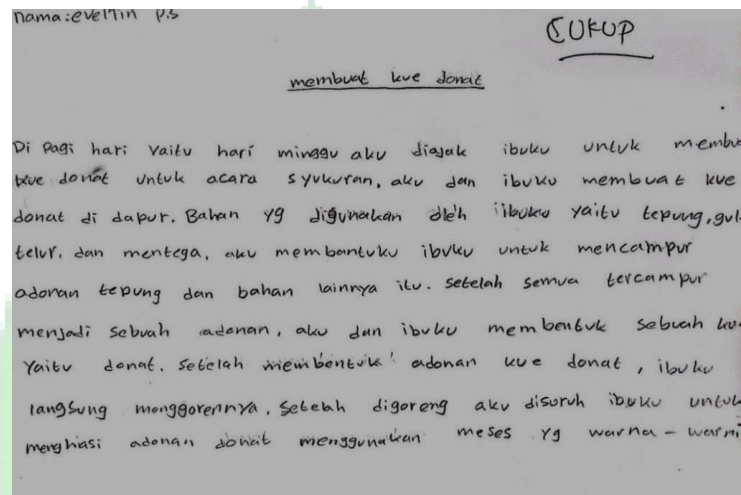 nama:eveltin p.s
CUKUP
membuat kue donat
Di Pagi hari Yaitu hari minggu aku diajak ibuku untuk membu
kue donat untuk acara syukuran, aku dan ibuku membuat kue
donat di dapur. Bahan yg digunakan oleh ibuku yaitu tepung, gul
telur, dan mentega, aku membantuku ibuku untuk mencampur
adonan tepung dan bahan lainnya itu. setelah semua tercampur
menjadi sebuah adonan, aku dan ibuku membentuk sebuah ku
Yaitu donat. Setelah membentuk adonan kue donat, ibuku
langsung menggorennya, Setelah digoreng aku disuruh ibuku untuk
menghiasi adonan donat menggunakan meses yg warna - warni